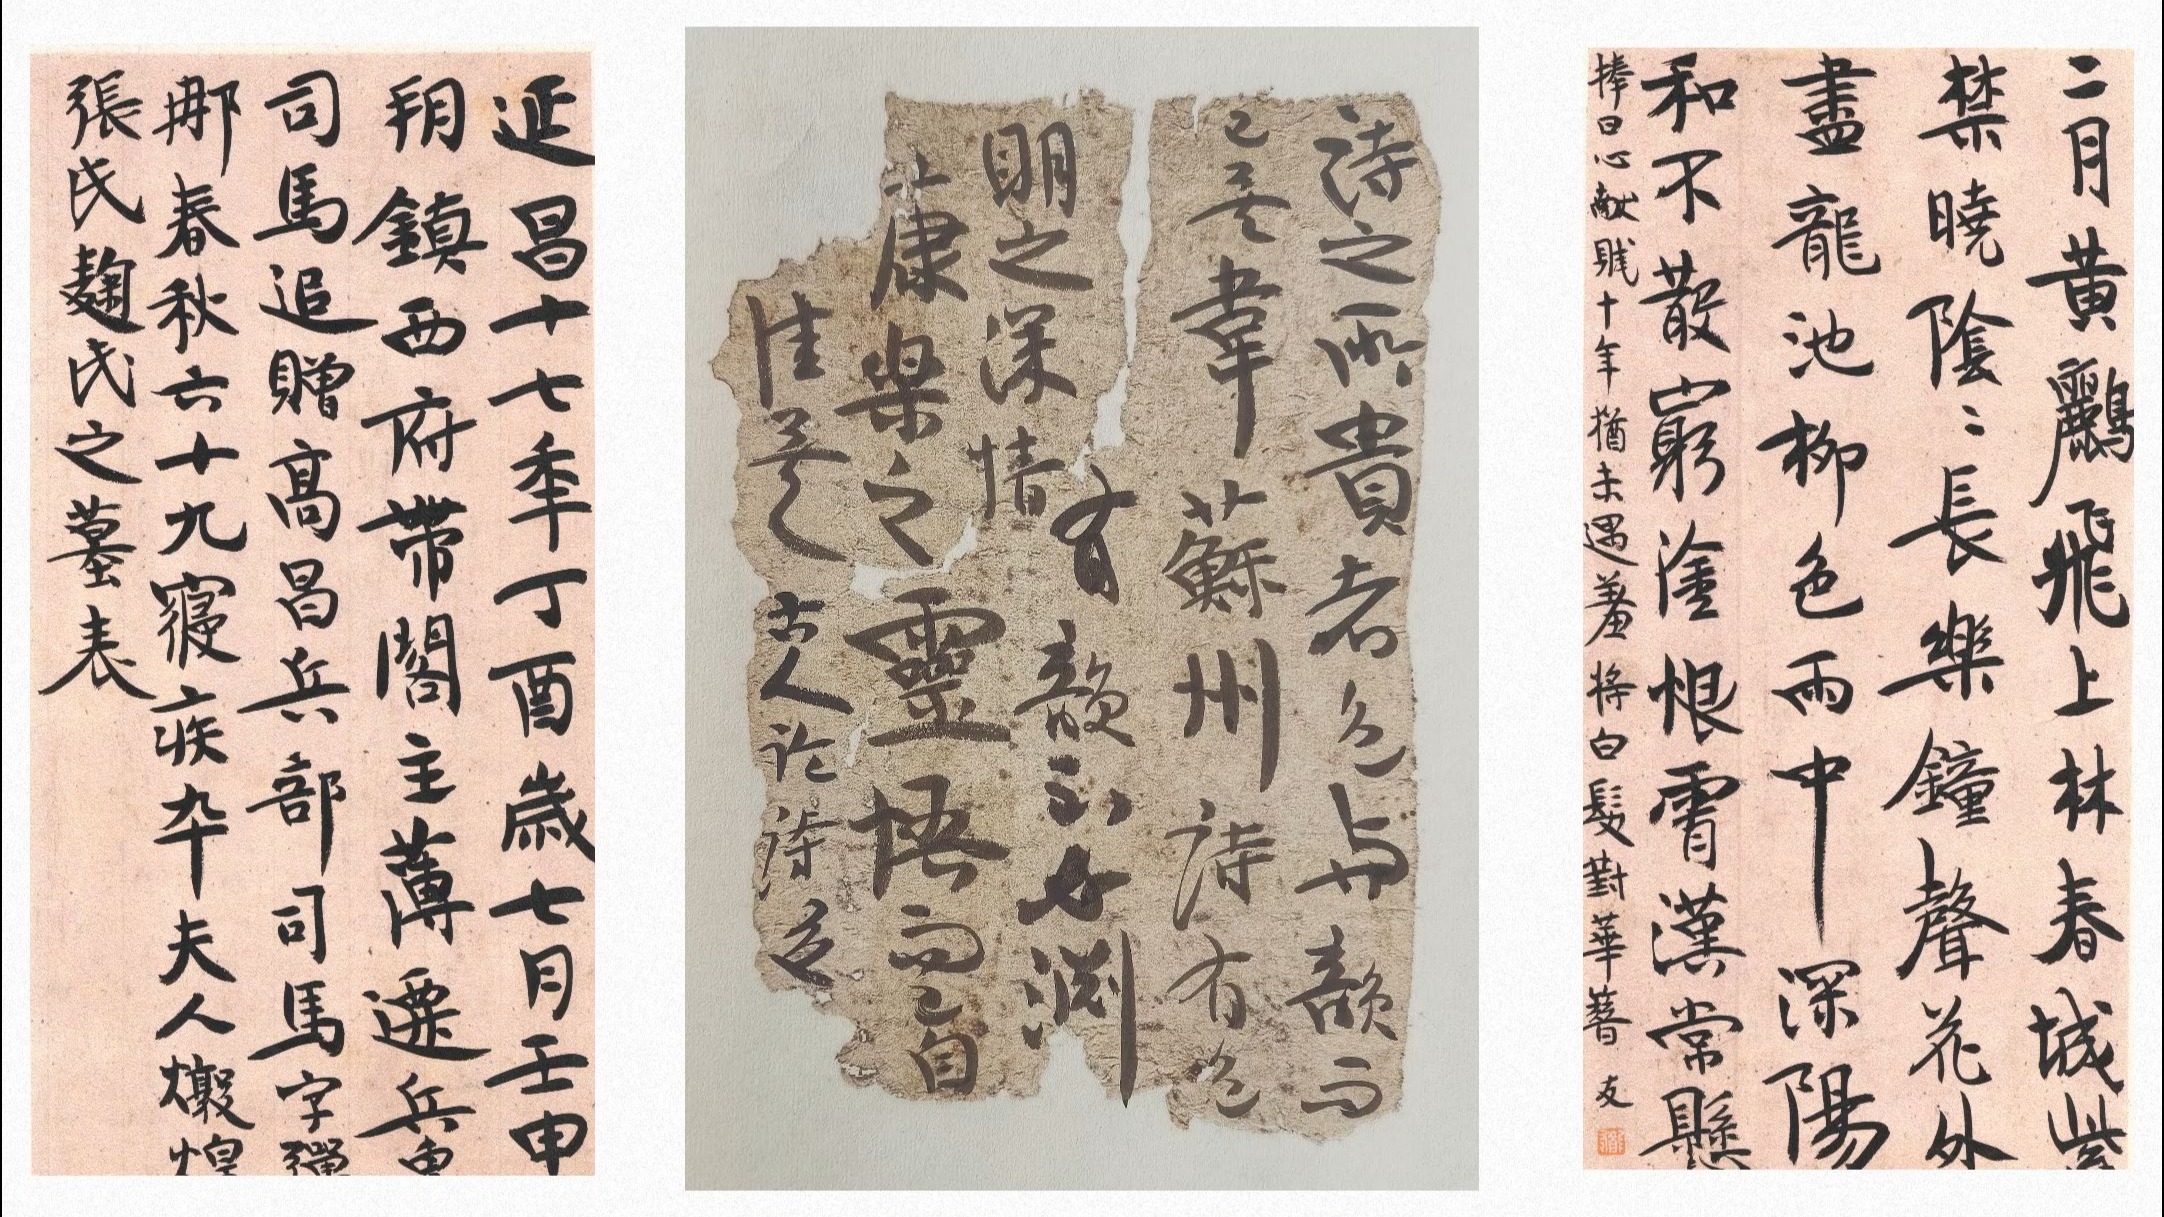 二月黃鸝飛上林春城紫
禁曉陰〻長樂鐘聲花外
盡龍池柳色雨中深陽
和不散窮塗恨霄漢常懸
捧日心献賦十年猶未遇羞將白髮對華簪 友
詩之所貴者色与韻而
已矣韋蘇州詩有色
有韻不必淵
明之深情
康樂之靈悟而已自
佳矣 古人論詩
延昌十七秊丁酉歲七月壬申
朔鎮西府帶閣主薄遷兵
司馬追贈高昌兵部司馬字彈
那春秋六十九寢疾卒夫人燉煌
張氏麴氏之墓表